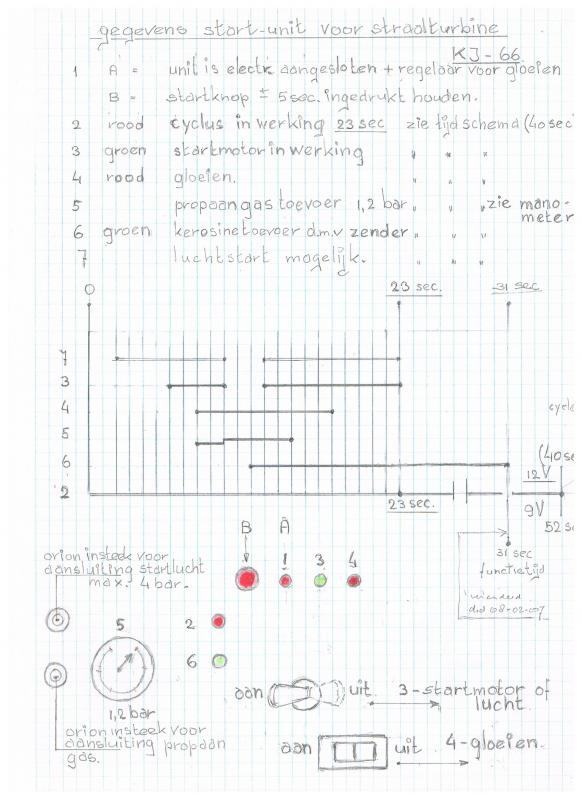 gegevens start-unit voor straalturbine
KJ-66
1 A = unit is electr. aangesloten + regelaar voor gloeien
B = startknop ± 5 sec. ingedrukt houden.
2 rood cyclus in werking 23 sec zie tijdschema (40 sec
3 groen startmotor in werking " " "
4 rood gloeien. " " "
5 propaangas toevoer 1,2 bar " " " zie mano-
meter
6 groen kerosinetoevoer d.m.v zender " " "
7 luchtstart mogelijk. " " "
0 23 sec. 31 sec.
7
3
4
5
6
2
cycl
(40 se
12V
9V
23 sec.
52 s
31 sec
functietijd
dd 08-02-07
B A
1 3 4
orion insteek voor
aansluiting startlucht
max. 4 bar.
2
5
6
1,2 bar
orion insteek voor
aansluiting propaan
gas.
aan uit. 3-startmotor of
lucht.
aan uit 4-gloeien.